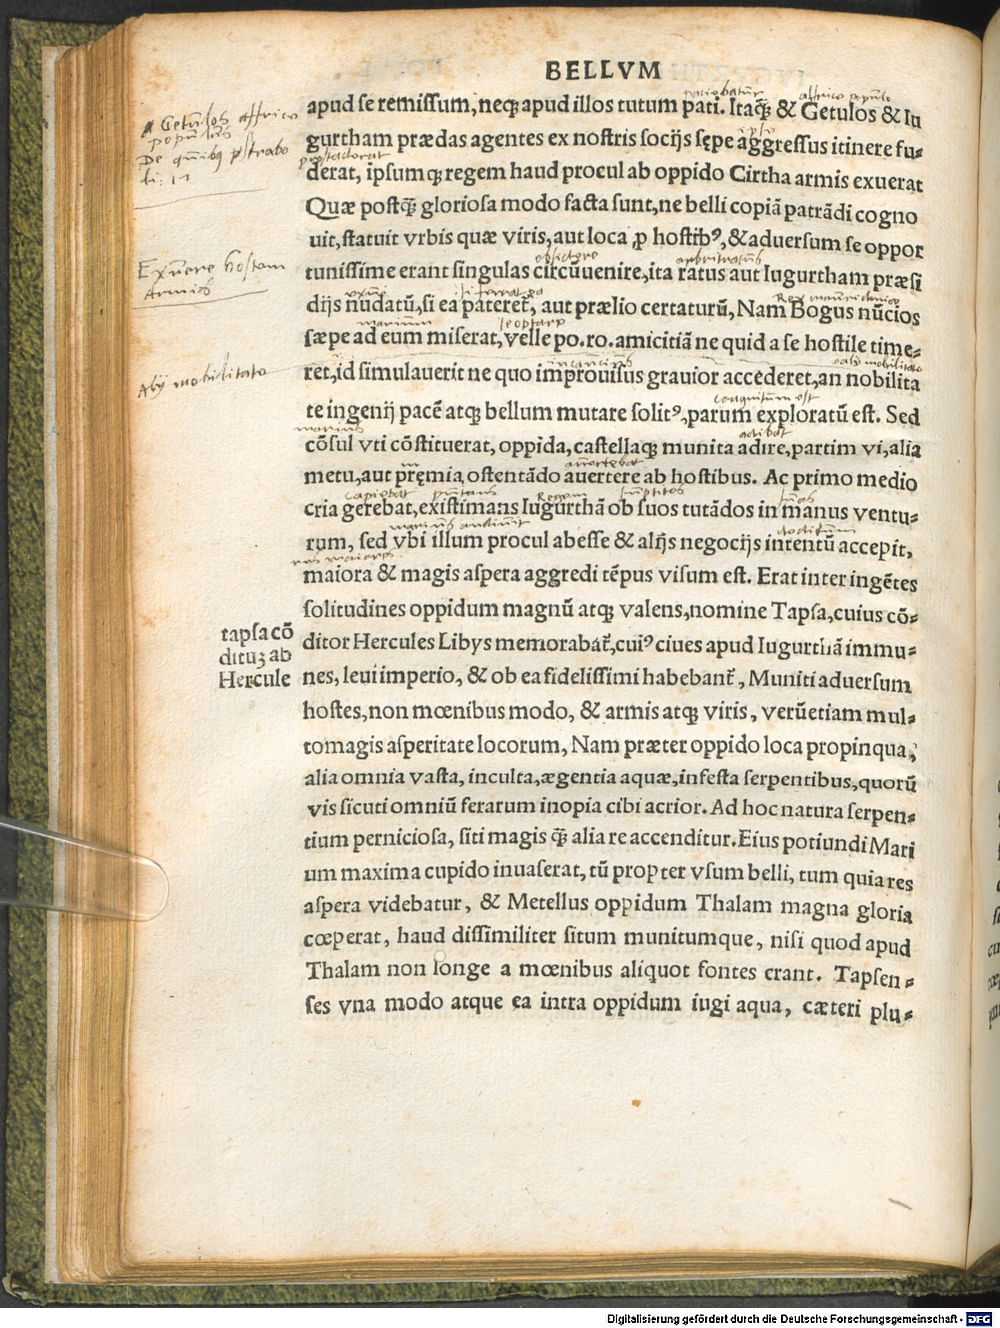 BELLVM
apud se remissum, neq; apud illos tutum pati. Itaq̃; & Getulos & Iu
gurtham prædas agentes ex nostris socijs sępe aggressus itinere fu-
derat, ipsumq; regem haud procul ab oppido Cirtha armis exuerat
Quæ postq̃; gloriosa modo facta sunt, ne belli copiā patrādi cogno
uit, statuit vrbis quæ viris, aut loca ꝓ hostibꝰ, & aduersum se oppor
tunissime erant singulas circūuenire, ita ratus aut Iugurtham præsi
dijs nudatū, si ea pateret᷑, aut prælio certaturū, Nam Bogus nūcios
sæpe ad eum miserat, velle po. ro. amicitiā ne quid a se hostile time-
ret, id simulauerit ne quo improuisus grauior accederet, an nobilita
te ingenij pacē atq; bellum mutare solitꝰ, parum exploratū est. Sed
cōsul vti cōstituerat, oppida, castellaq; munita adire, partim vi, alia
metu, aut pręmia ostentādo auertere ab hostibus. Ac primo medio
cria gerebat, existimans Iugurthā ob suos tutādos in manus ventu-
rum, sed vbi illum procul abesse & alijs negocijs intentū accepit,
maiora & magis aspera aggredi tēpus visum est. Erat inter ingētes
solitudines oppidum magnū atq; valens, nomine Tapsa, cuius cō-
ditor Hercules Libys memorabat᷑, cuiꝰ ciues apud Iugurthā immu-
nes, leui imperio, & ob ea fidelissimi habebant᷑, Muniti aduersum
hostes, non mœnibus modo, & armis atq; viris, verūetiam mul-
tomagis asperitate locorum, Nam præter oppido loca propinqua,
alia omnia vasta, inculta, ægentia aquæ, infesta serpentibus, quorū
vis sicuti omniū ferarum inopia cibi acrior. Ad hoc natura serpen-
tium perniciosa, siti magis q̃; alia re accenditur. Eius potiundi Mari
um maxima cupido inuaserat, tū propter vsum belli, tum quia res
aspera videbatur, & Metellus oppidum Thalam magna gloria
cœperat, haud dissimiliter situm munitumque, nisi quod apud
Thalam non longe a mœnibus aliquot fontes erant. Tapsen-
ses vna modo atque ea intra oppidum iugi aqua, cæteri plu-
tapsa cō
dituꝫ ab
Hercule
Getulos affrice
populus
Exuere hostem
armis
Aby mobilitate
affrice populi
ipse
obsidere
arbitratus
Rex mauritanie
marium
marius
adibat
auertebat
capiebat putans Regem
marius audiuit
res maiores